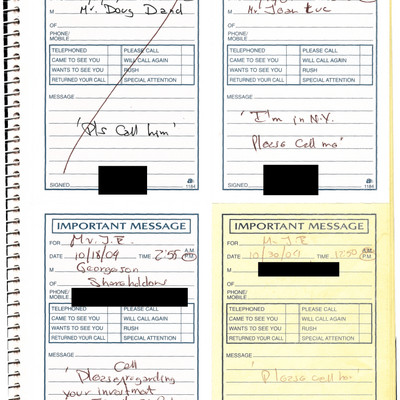 M r. Doug Dand
OF
PHONE/
MOBILE
TELEPHONED PLEASE CALL
CAME TO SEE YOU WILL CALL AGAIN
WANTS TO SEE YOU RUSH
RETURNED YOUR CALL SPECIAL ATTENTION
MESSAGE
'Pls Call him'
SIGNED 1184
M r. Jean Luc
OF
PHONE/
MOBILE
TELEPHONED PLEASE CALL
CAME TO SEE YOU WILL CALL AGAIN
WANTS TO SEE YOU RUSH
RETURNED YOUR CALL SPECIAL ATTENTION
MESSAGE
"I'm in N.Y.
Please Call me"
SIGNED 1184
IMPORTANT MESSAGE
FOR Mr. J.E.
DATE 10/18/09 TIME 2:55 A.M. P.M.
M Georgeson
OF Shareholder
PHONE/
MOBILE
TELEPHONED PLEASE CALL
CAME TO SEE YOU WILL CALL AGAIN
WANTS TO SEE YOU RUSH
RETURNED YOUR CALL SPECIAL ATTENTION
MESSAGE
Call
'Please regarding
your investment
IMPORTANT MESSAGE
FOR Mr. J.E.
DATE 10/20/09 TIME 12:50 A.M. P.M.
M
OF
PHONE/
MOBILE
TELEPHONED PLEASE CALL
CAME TO SEE YOU WILL CALL AGAIN
WANTS TO SEE YOU RUSH
RETURNED YOUR CALL SPECIAL ATTENTION
MESSAGE
'Please call him'